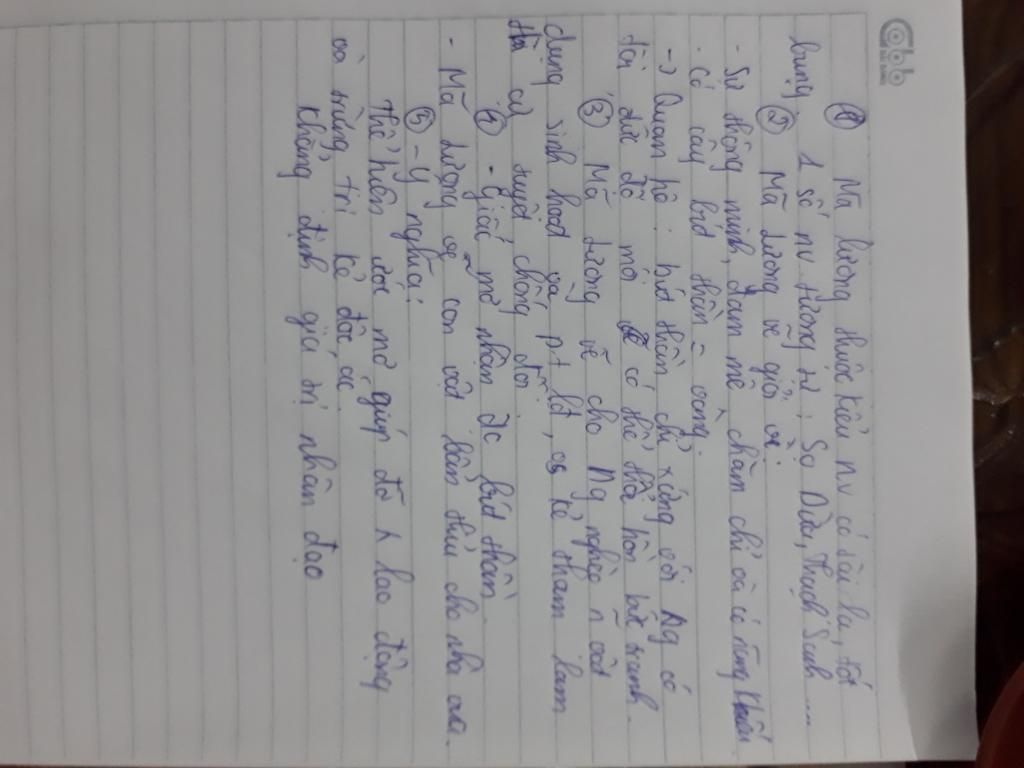 Cabb
① Mã lương thuộc kiểu nv có tài lạ, tốt
bụng, 1 số nv tương tự: Sọ Dừa, Thạch Sanh ...
② Mã lương vẽ giỏi vì:
- Sự thông minh, đam mê chăm chỉ và có năng khiếu
- có cây bút thần = vàng.
-> Quan hệ: bút thần chỉ xứng với Ng có
tài đức đó mới có thể thổi hồn bức tranh.
③ Mã lương vẽ cho Ng nghèo n vật
dụng sinh hoạt và pt lđ, vs kẻ tham lam
thì cự tuyệt chống đối.
④ - Giấc mơ nhận đc bút thần.
- Mã lương vẽ con vật bần thỉu cho nhà vua.
⑤ - Ý nghĩa:
Thể hiện ước mơ giúp đỡ n lao động
và trừng trị kẻ độc ác
Khẳng định giá trị nhân đạo